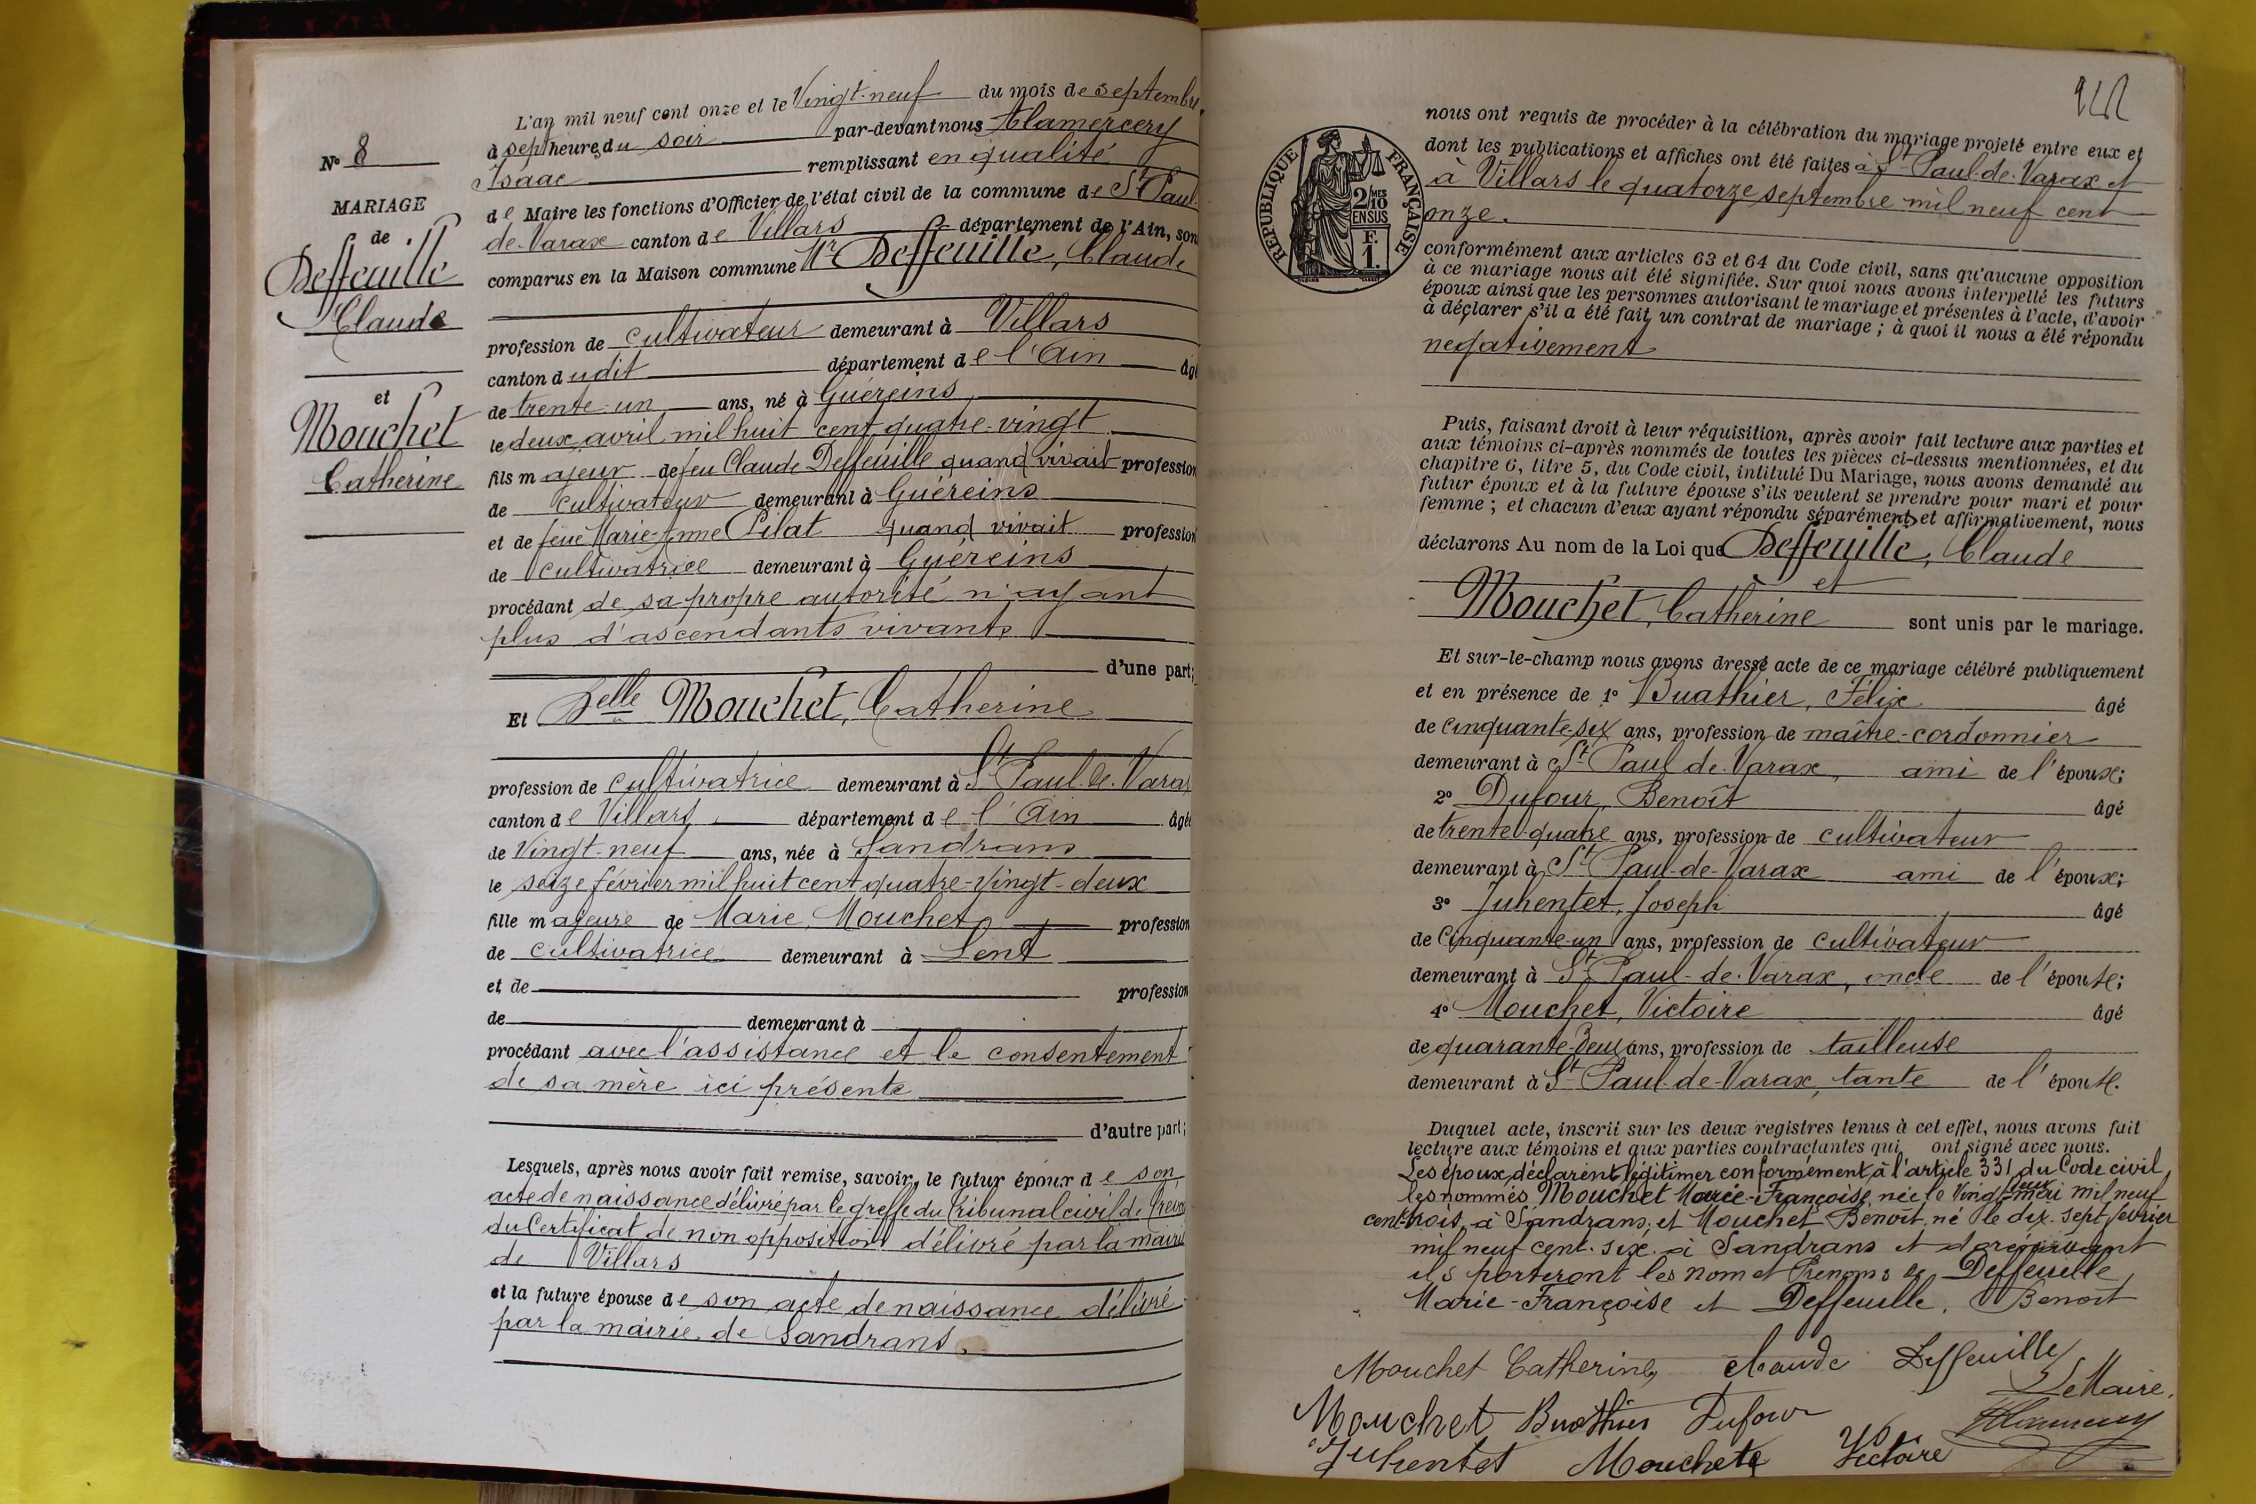 L'an mil neuf cent onze et le Vingt-neuf du mois de septembre
à sept heures du soir par-devant nous Alamercery
Isaac remplissant en qualité
de Maire les fonctions d'Officier de l'état civil de la commune de St Paul
de-Varax canton de Villars département de l'Ain, son
comparus en la Maison commune Mr Deffeuille, Claude
No 8
MARIAGE
de
Deffeuille
Claude
et
Mouchet
Catherine
profession de cultivateur demeurant à Villars
canton dudit département de l'Ain âgé
de trente-un ans, né à Guéreins
le deux avril mil huit cent quatre-vingt
fils majeur de feu Claude Deffeuille quand vivait profession
de cultivateur demeurant à Guéreins
et de feue Marie-Anne Pilat quand vivait profession
de cultivatrice demeurant à Guéreins
procédant de sa propre autorité n'ayant
plus d'ascendants vivants
d'une part;
Et Delle Mouchet, Catherine
profession de cultivatrice demeurant à St Paul-de-Varax
canton de Villars département de l'Ain âgée
de Vingt-neuf ans, née à Sandrans
le seize février mil huit cent quatre-vingt-deux
fille majeure de Marie Mouchet profession
de cultivatrice demeurant à Lent
et de profession
de demeurant à
procédant avec l'assistance et le consentement
de sa mère ici présente
d'autre part;
Lesquels, après nous avoir fait remise, savoir, le futur époux de son
acte de naissance délivré par le greffe du tribunal civil de
du Certificat de non opposition délivré par la mairie
de Villars
et la future épouse de son acte de naissance délivré
par la mairie de Sandrans.
RÉPUBLIQUE FRANÇAISE
2/10MES
EN SUS
F.
1.
nous ont requis de procéder à la célébration du mariage projeté entre eux et
dont les publications et affiches ont été faites à St Paul-de-Varax et
à Villars le quatorze septembre mil neuf cent
onze.
conformément aux articles 63 et 64 du Code civil, sans qu'aucune opposition
à ce mariage nous ait été signifiée. Sur quoi nous avons interpellé les futurs
époux ainsi que les personnes autorisant le mariage et présentes à l'acte, d'avoir
à déclarer s'il a été fait un contrat de mariage; à quoi il nous a été répondu
negativement
Puis, faisant droit à leur réquisition, après avoir fait lecture aux parties et
aux témoins ci-après nommés de toutes les pièces ci-dessus mentionnées, et du
chapitre 6, titre 5, du Code civil, intitulé Du Mariage, nous avons demandé au
futur époux et à la future épouse s'ils veulent se prendre pour mari et pour
femme; et chacun d'eux ayant répondu séparément et affirmativement, nous
déclarons Au nom de la Loi que Deffeuille, Claude
et
Mouchet, Catherine sont unis par le mariage.
Et sur-le-champ nous avons dressé acte de ce mariage célébré publiquement
et en présence de 1o Buathier, Félix âgé
de cinquante-six ans, profession de maître-cordonnier
demeurant à St Paul de Varax, ami de l'épouse;
2o Dufour, Benoît âgé
de trente-quatre ans, profession de cultivateur
demeurant à St Paul-de-Varax ami de l'époux;
3o Juhentet, Joseph âgé
de Cinquante-un ans, profession de cultivateur
demeurant à St Paul-de-Varax, oncle de l'épouse;
4o Mouchet, Victoire âgé
de quarante-deux ans, profession de tailleuse
demeurant à St Paul-de-Varax, tante de l'épouse.
Duquel acte, inscrit sur les deux registres tenus à cet effet, nous avons fait
lecture aux témoins et aux parties contractantes qui ont signé avec nous.
Les époux déclarent légitimer conformément à l'article 331 du Code civil,
les nommés Mouchet Marie-Françoise, née le Vingt-deux mil neuf
cent-trois, à Sandrans, et Mouchet Benoît, né le dix-sept février
mil neuf cent-six à Sandrans et dorénavant
ils porteront les nom et Prénoms de Deffeuille,
Marie-Françoise et Deffeuille, Benoît
Mouchet Catherine Claude Deffeuille
Le Maire,
Mouchet Buathier Dufour
Juhentet Mouchet Victoire